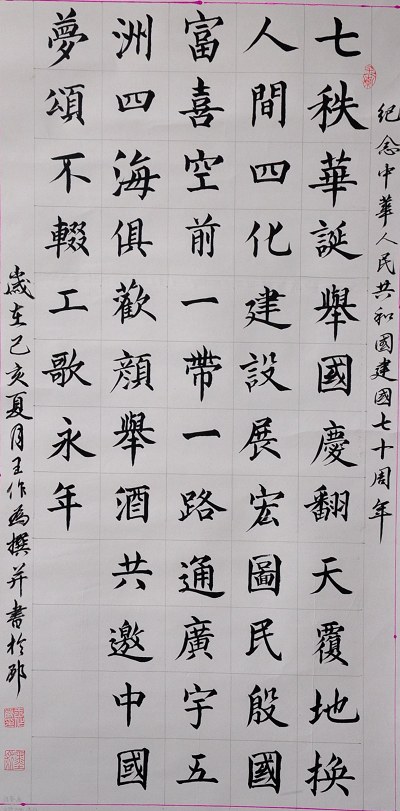 紀念中華人民共和國建國七十周年
七秩華誕舉國慶翻天覆地換
人間四化建設展宏圖民殷國
富喜空前一帶一路通廣宇五
洲四海俱歡顏舉酒共邀中國
夢頌不輟工歌永年
歲在己亥夏月王作為撰并書於邵